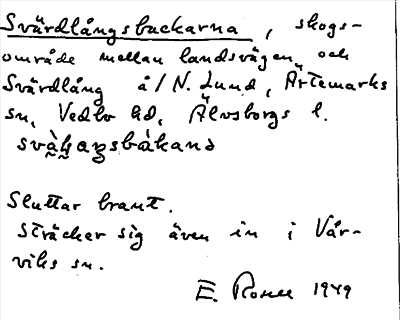 Svärdlångsbackarna, skogs-
område mellan landsvägen och
Svärdlång å/ N. Lund, Ärtemarks
sn, Vedbo hd, Älvsborgs l.
Sluttar brant.
sträcker sig även in i Vår-
viks sn.
E. Rosell 1949